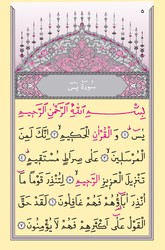 ٥
سورة يس
بِسْمِ اللَّهِ الرَّحْمَٰنِ الرَّحِيمِ
يسٓ ۝١ وَالْقُرْآنِ الْحَكِيمِ ۝٢ إِنَّكَ لَمِنَ
الْمُرْسَلِينَ ۝٣ عَلَىٰ صِرَاطٍ مُسْتَقِيمٍ ۝٤
تَنْزِيلَ الْعَزِيزِ الرَّحِيمِ ۝٥ لِتُنْذِرَ قَوْمًا مَا
أُنْذِرَ آبَاؤُهُمْ فَهُمْ غَافِلُونَ ۝٦ لَقَدْ حَقَّ
الْقَوْلُ عَلَىٰ أَكْثَرِهِمْ فَهُمْ لَا يُؤْمِنُونَ ۝٧